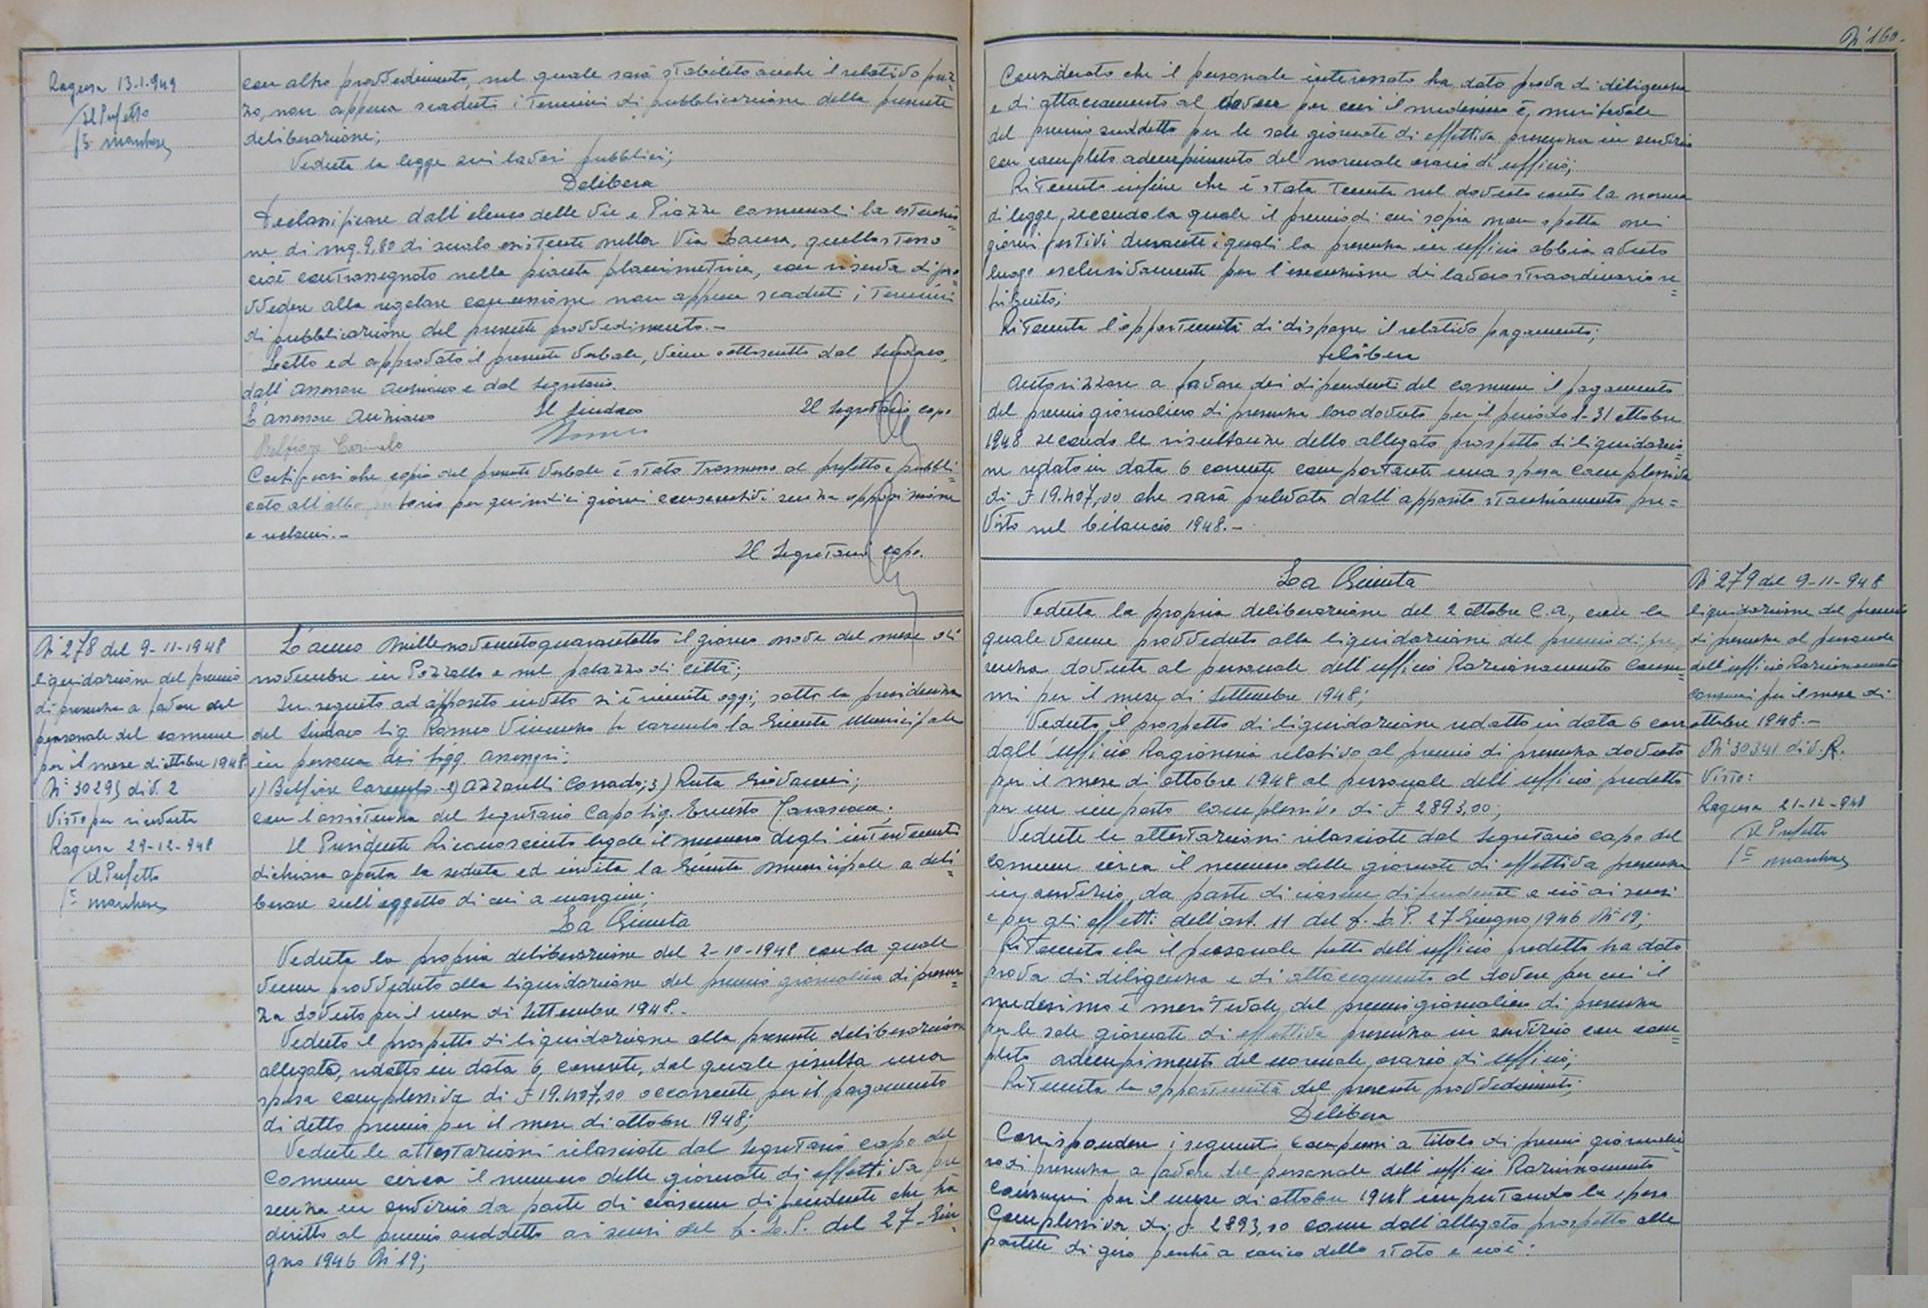 Ragusa 13-1-949
Il Prefetto
con altro provvedimento, nel quale sarà stabilito anche il relativo prez=
zo, non appena scaduti i termini di pubblicazione della presente
deliberazione;
Veduta la legge sui lavori pubblici;
Delibera
Declassificare dall'elenco delle Vie e Piazze comunali la estensio=
ne di mq. 9,80 di suolo esistente nella Via Laura, quello stesso
cioè contrassegnato nella pianta planimetrica, con riserva di pro=
vvedere alla regolare concessione non appena scaduti i termini
di pubblicazione del presente provvedimento.-
Letto ed approvato il presente verbale, viene sottoscritto dal Sindaco,
dall'Assessore Anziano e dal Segretario.
L'assessore Anziano Il Sindaco Il Segretario capo
Belfiore Carmelo
Certificasi che copia del presente Verbale è stata trasmessa al prefetto e pubbli=
cata all'albo pretorio per quindici giorni consecutivi senza opposizione
e reclami.-
Il Segretario capo.
N° 278 del 9-11-1948
liquidazione del premio
di presenza a favore del
personale del comune
per il mese di ottobre 1948
N° 30295 div. 2
Visto per ricevuta
Ragusa 29-12-948
Il Prefetto
L'anno Millenovecentoquarantotto il giorno nove del mese di
novembre in Pozzallo e nel palazzo di città;
In seguito ad apposito invito si è riunita oggi, sotto la presidenza
del Sindaco Sig. Romeo Vincenzo fu Carmelo la Giunta Municipale
in persona dei Sigg. Assessori:
1) Belfiore Carmelo - 2) Azzarelli Corrado; 3) Ruta Giovanni;
con l'assistenza del Segretario Capo Sig. Ernesto
Il Presidente Riconosciuto legale il numero degli intervenuti
dichiara aperta la seduta ed invita la Giunta Municipale a deli=
berare sull'oggetto di cui a margine;
La Giunta
Veduta la propria deliberazione del 2-10-1948 con la quale
venne provveduto alla liquidazione del premio giornaliero di presen=
za dovuto per il mese di Settembre 1948.-
Veduto il prospetto di liquidazione alla presente deliberazione
allegato, redatto in data 6 corrente, dal quale risulta una
spesa complessiva di £ 19.407,00 occorrente per il pagamento
di detto premio per il mese di ottobre 1948;
Vedute le attestazioni rilasciate dal Segretario capo del
Comune circa il numero delle giornate di effettiva pre
senza in servizio da parte di ciascun dipendente che ha
diritto al premio suddetto ai sensi del D.L.P. del 27-Giu=
gno 1946 N° 19;
N° 160.
Considerato che il personale interessato ha dato prova di diligenza
e di attaccamento al dovere per cui il medesimo è meritevole
del premio suddetto per le sole giornate di effettiva presenza in servizio
con completo adempimento del normale orario di ufficio;
Ritenuto infine che è stata tenuta nel dovuto conto la norma
di legge, secondo la quale il premio di cui sopra non spetta nei
giorni festivi durante i quali la presenza in ufficio abbia avuto
luogo esclusivamente per l'esecuzione di lavoro straordinario re=
tribuito;
Ritenuta l'opportunità di disporre il relativo pagamento;
Delibera
Autorizzare a favore dei dipendenti del comune il pagamento
del premio giornaliero di presenza loro dovuto per il periodo 1-31 ottobre
1948 secondo le risultanze dello allegato prospetto di liquidazio=
ne redatto in data 6 corrente comportante una spesa complessiva
di £ 19.407,00 che sarà prelevata dall'apposito stanziamento pre=
visto nel bilancio 1948.-
La Giunta
Veduta la propria deliberazione del 2 ottobre c.a., con la
quale venne provveduto alla liquidazione del premio di pre
senza dovuta al personale dell'ufficio Razionamento Consu
mi per il mese di Settembre 1948;
Veduto il prospetto di liquidazione redatto in data 6 corr
dall'ufficio Ragioneria relativo al premio di presenza dovuto
per il mese di ottobre 1948 al personale dell'ufficio predetto
per un importo complessivo di £ 2893,00;
Vedute le attestazioni rilasciate dal Segretario capo del
comune circa il numero delle giornate di effettiva presenza
in servizio da parte di ciascun dipendente e ciò ai sensi
e per gli effetti dell'art. 11 del D.L.P. 27 Giugno 1946 N° 19;
Ritenuto che il personale tutto dell'ufficio predetto ha dato
prova di diligenza e di attaccamento al dovere per cui il
medesimo è meritevole del premio giornaliero di presenza
per le sole giornate di effettiva presenza in servizio con com=
pleto adempimento del normale orario di ufficio;
Ritenuta la opportunità del presente provvedimento;
Delibera
Corrispondere i seguenti compensi a titolo di premio giornalie=
ro di presenza a favore del personale dell'ufficio Razionamento
Consumi per il mese di ottobre 1948 imputando la spesa
complessiva di £ 2893,00 come dall'allegato prospetto alle
partite di giro perchè a carico dello stato e cioè:
N° 279 del 9-11-948
liquidazione del premio
di presenza al personale
dell'ufficio Razionamento
consumi per il mese di
ottobre 1948.-
N° 30341 div. R.
Visto:
Ragusa 21-12-948
Il Prefetto